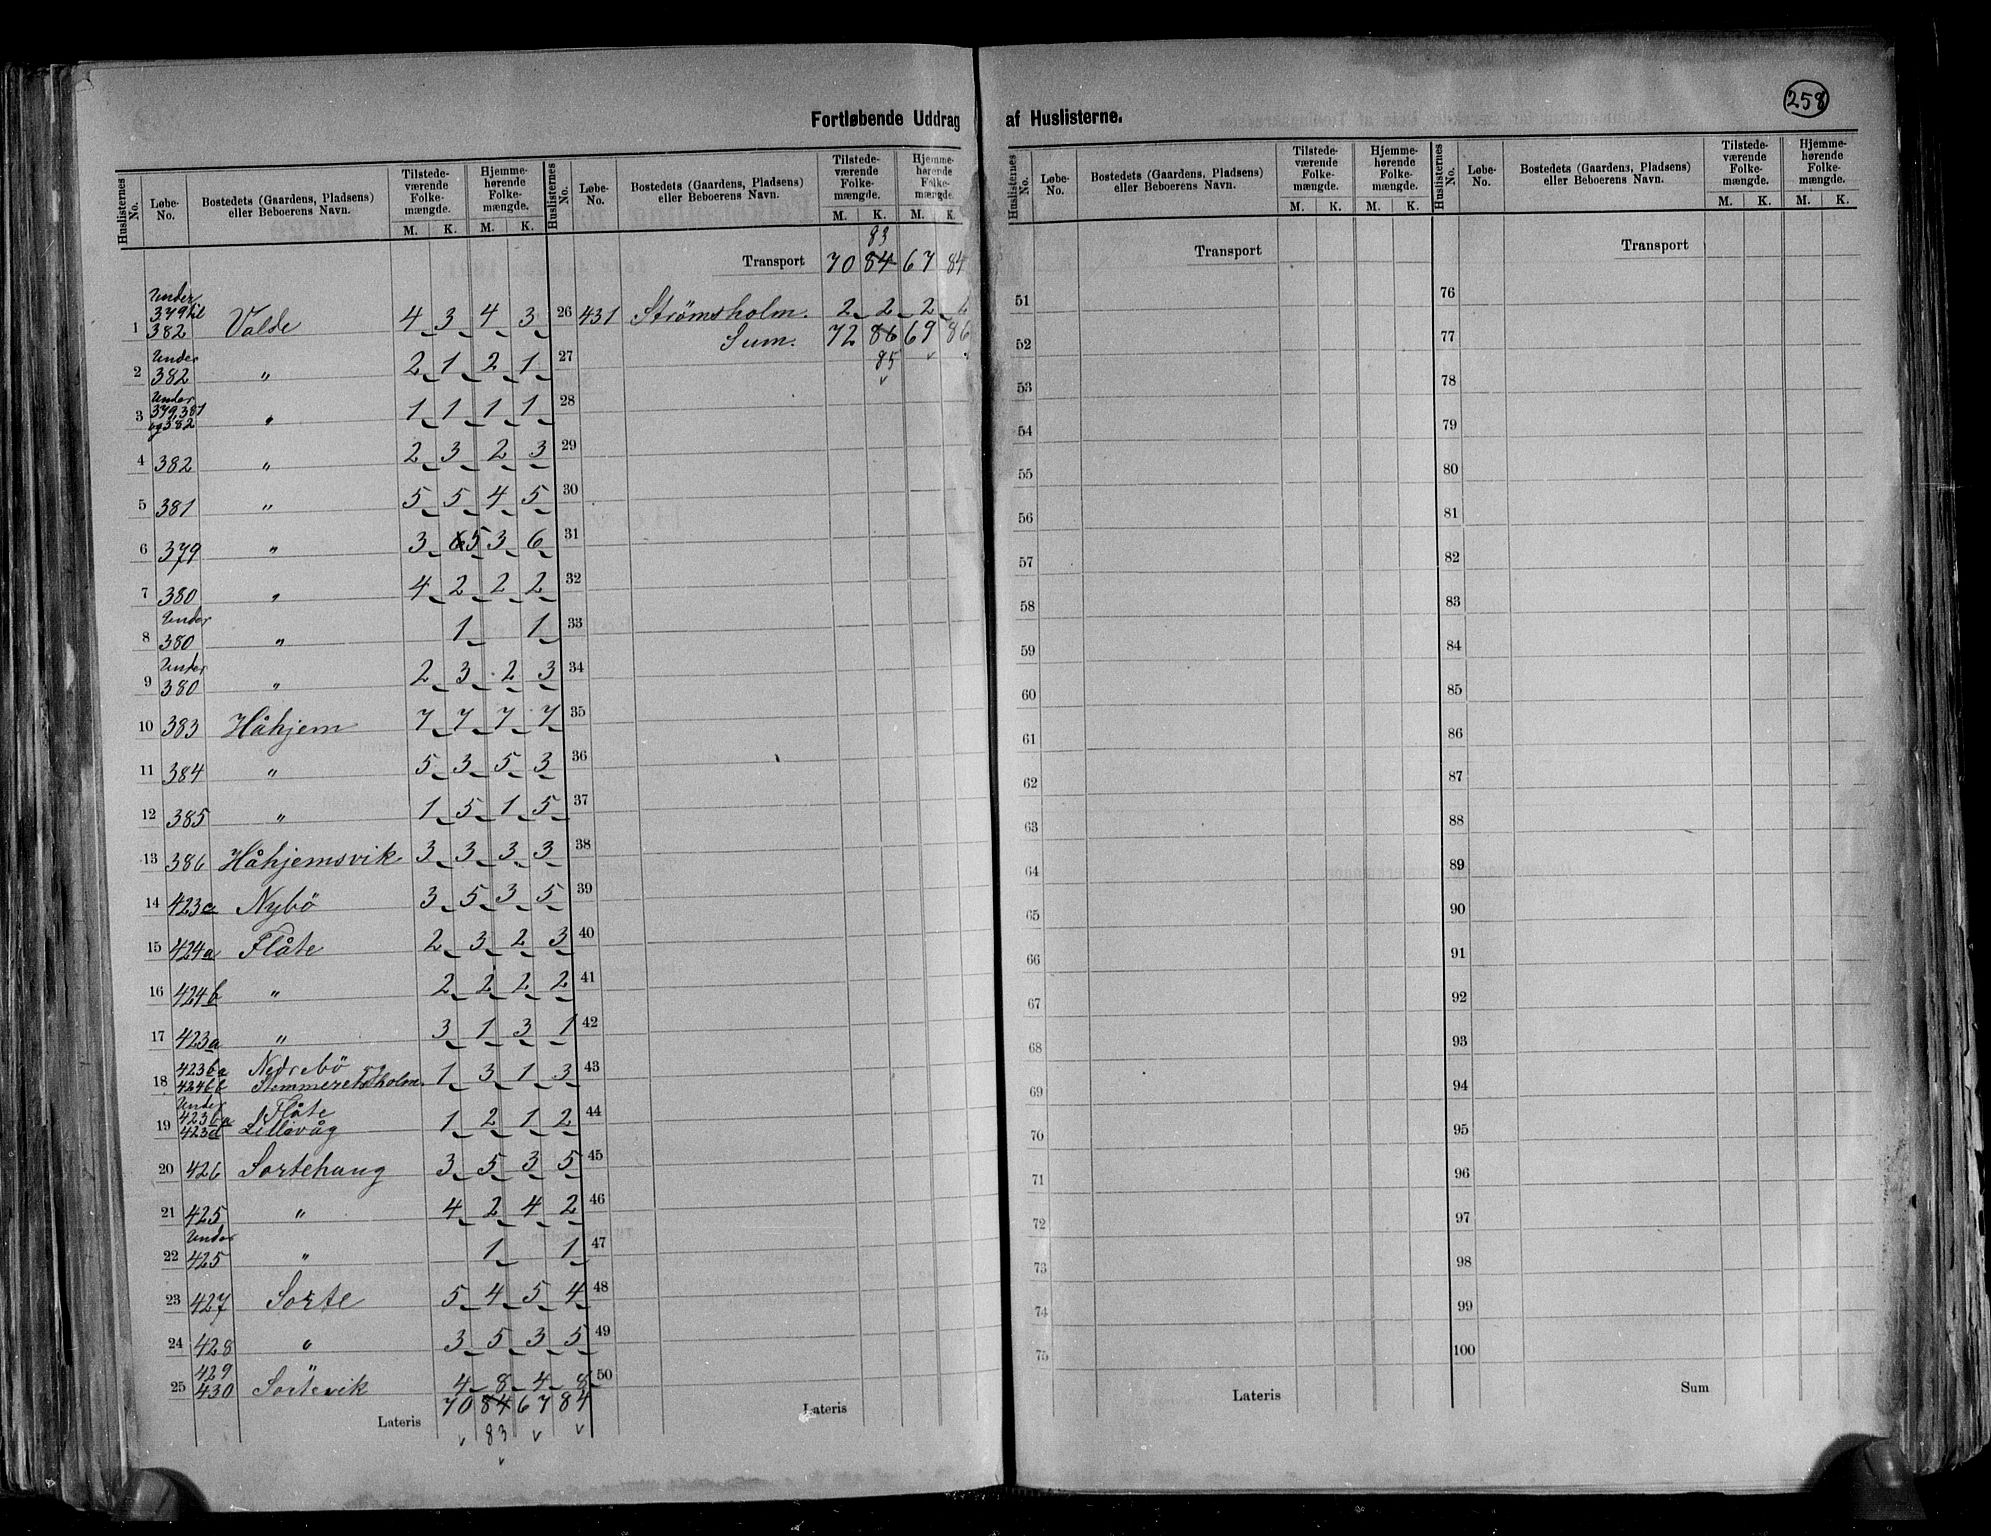 258
Fortløbende Uddrag af Huslisterne.
Huslisternes No. Løbe-No. Bostedets (Gaardens, Pladsens) eller Beboerens Navn. Tilstede-værende Folke-mængde. M. K. Hjemme-hørende Folke-mængde. M. K.
Huslisternes No. Løbe-No. Bostedets (Gaardens, Pladsens) eller Beboerens Navn. Tilstede-værende Folke-mængde. M. K. Hjemme-hørende Folke-mængde. M. K.
1 Under 379 til 382 Valde 4 3 4 3
2 Under 382 " 2 1 2 1
3 Under 379, 381 og 382 " 1 1 1 1
4 382 " 2 3 2 3
5 381 " 5 5 4 5
6 379 " 3 6 5 3 6
7 380 " 4 2 2 2
8 Under 380 " 1 1
9 Under 380 " 2 3 2 3
10 383 Håhjem 7 7 7 7
11 384 " 5 3 5 3
12 385 " 1 5 1 5
13 386 Håhjemsvik 3 3 3 3
14 423c Nybö 3 5 3 5
15 424a Flåte 2 3 2 3
16 424b " 2 2 2 2
17 423a " 3 1 3 1
18 423ba 424bb Nedrebö 1 3 1 3
19 Under 423ba 423d Flåte Lillevåg 1 2 1 2
20 426 Sortehaug 3 5 3 5
21 425 " 4 2 4 2
22 Under 425 " 1 1
23 427 Sorte 5 4 5 4
24 428 " 3 5 3 5
25 429 430 Sortevik 4 8 4 8
70 84 67 84
Lateris
83
83
Transport 70 84 67 84
26 431 Strømsholm. 2 2 2 2
Sum. 72 86 69 86
27 85
28
29
30
31
32
33
34
35
36
37
38
39
40
41
42
43
44
45
46
47
48
49
50
Lateris
Huslisternes No. Løbe-No. Bostedets (Gaardens, Pladsens) eller Beboerens Navn. Tilstede-værende Folke-mængde. M. K. Hjemme-hørende Folke-mængde. M. K.
Transport
51
52
53
54
55
56
57
58
59
60
61
62
63
64
65
66
67
68
69
70
71
72
73
74
75
Lateris
Huslisternes No. Løbe-No. Bostedets (Gaardens, Pladsens) eller Beboerens Navn. Tilstede-værende Folke-mængde. M. K. Hjemme-hørende Folke-mængde. M. K.
Transport
76
77
78
79
80
81
82
83
84
85
86
87
88
89
90
91
92
93
94
95
96
97
98
99
100
Sum